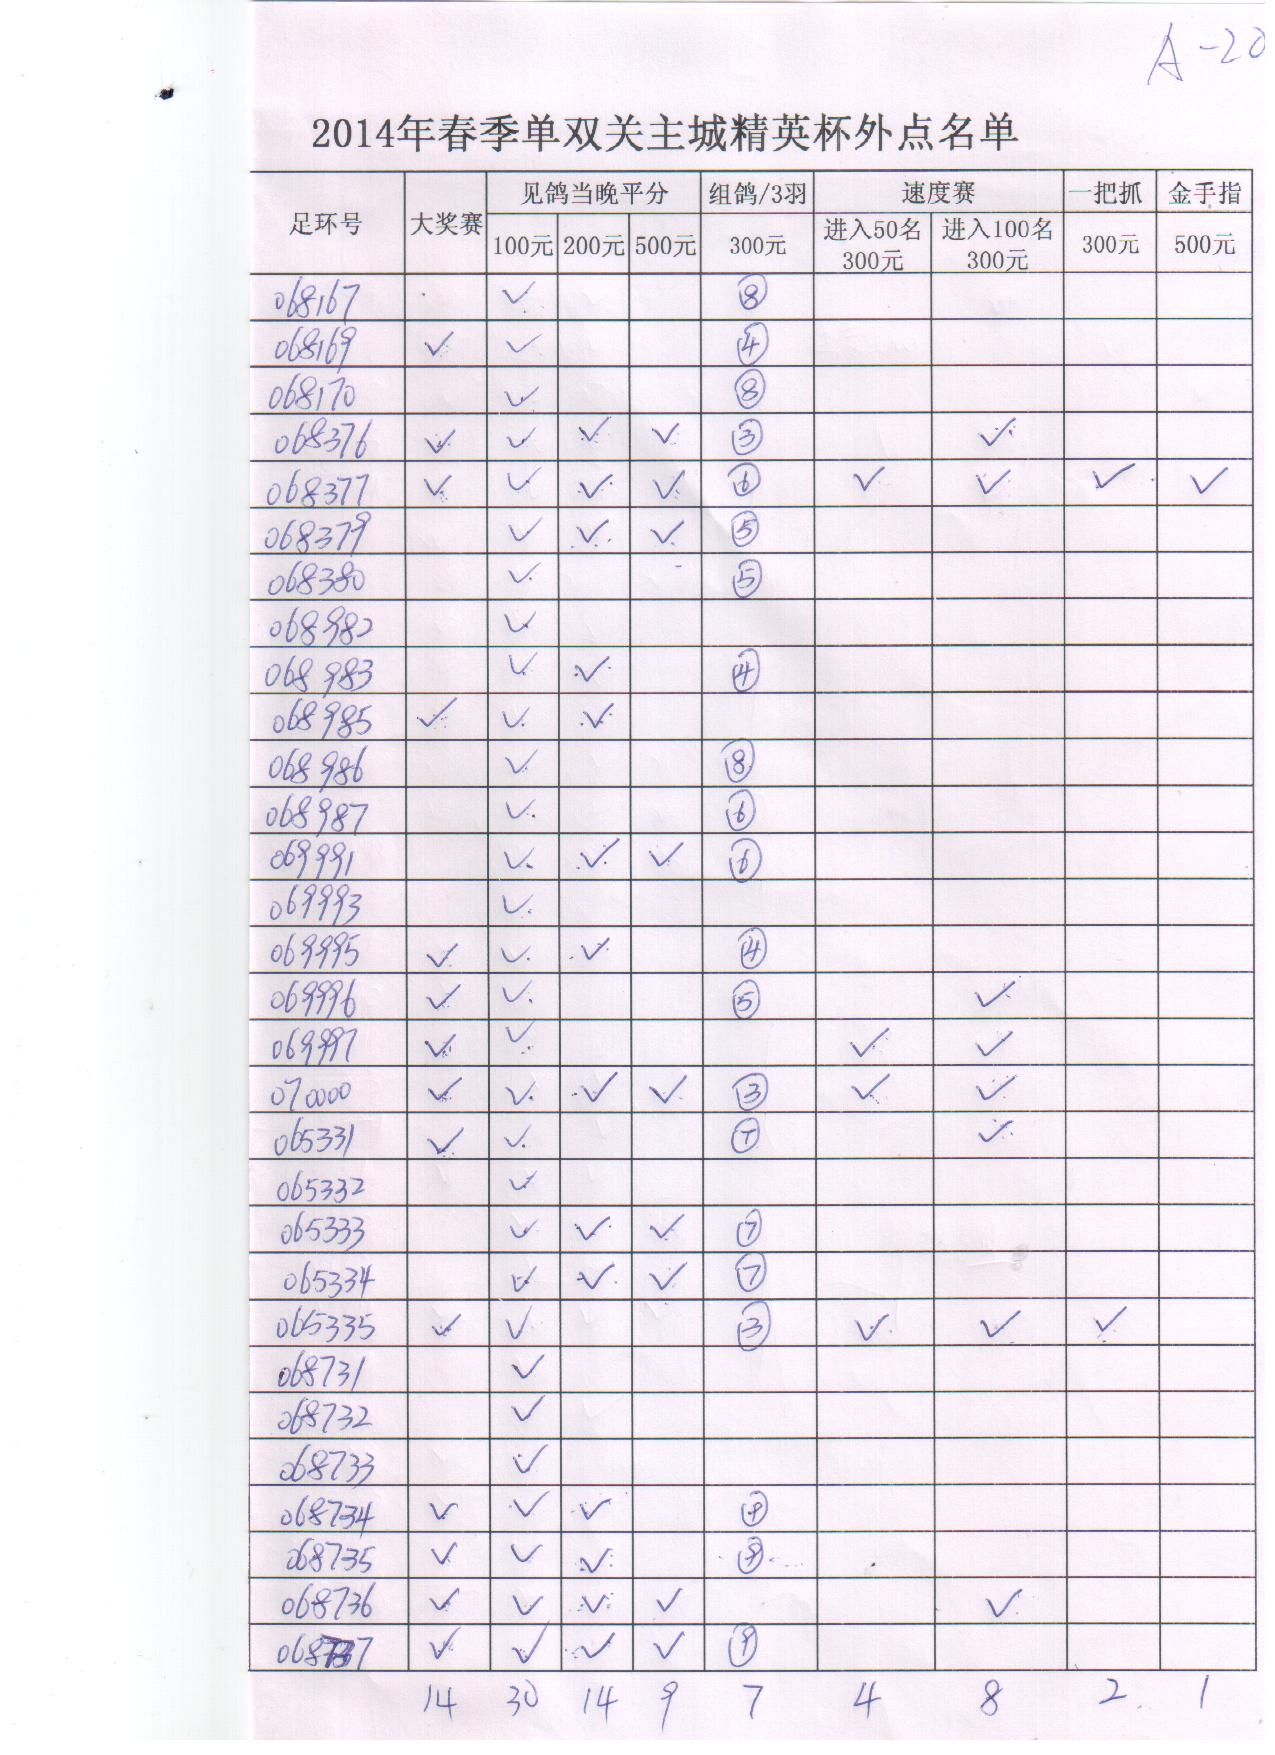 A-20
2014年春季单双关主城精英杯外点名单
足环号 大奖赛 见鸽当晚平分 组鸽/3羽 速度赛 一把抓 金手指
100元 200元 500元 300元 进入50名 300元 进入100名 300元 300元 500元
068167 ✓ ⑧
068169 ✓ ✓ ④
068170 ✓ ⑧
068376 ✓ ✓ ✓ ✓ ③ ✓
068377 ✓ ✓ ✓ ✓ ⑥ ✓ ✓ ✓ ✓
068379 ✓ ✓ ✓ ⑤
068380 ✓ ⑤
068982 ✓
068983 ✓ ✓ ④
068985 ✓ ✓ ✓
068986 ✓ ⑧
068987 ✓ ⑥
069991 ✓ ✓ ✓ ⑥
069993 ✓
069995 ✓ ✓ ✓ ④
069996 ✓ ✓ ⑤ ✓
069997 ✓ ✓ ✓ ✓
070000 ✓ ✓ ✓ ✓ ③ ✓ ✓
065331 ✓ ✓ ⑦ ✓
065332 ✓
065333 ✓ ✓ ✓ ⑦
065334 ✓ ✓ ✓ ⑦
065335 ✓ ✓ ③ ✓ ✓ ✓
068731 ✓
068732 ✓
068733 ✓
068734 ✓ ✓ ✓ ⑨
068735 ✓ ✓ ✓ ⑨
068736 ✓ ✓ ✓ ✓ ✓
068737 ✓ ✓ ✓ ✓ ⑨
14 30 14 9 7 4 8 2 1